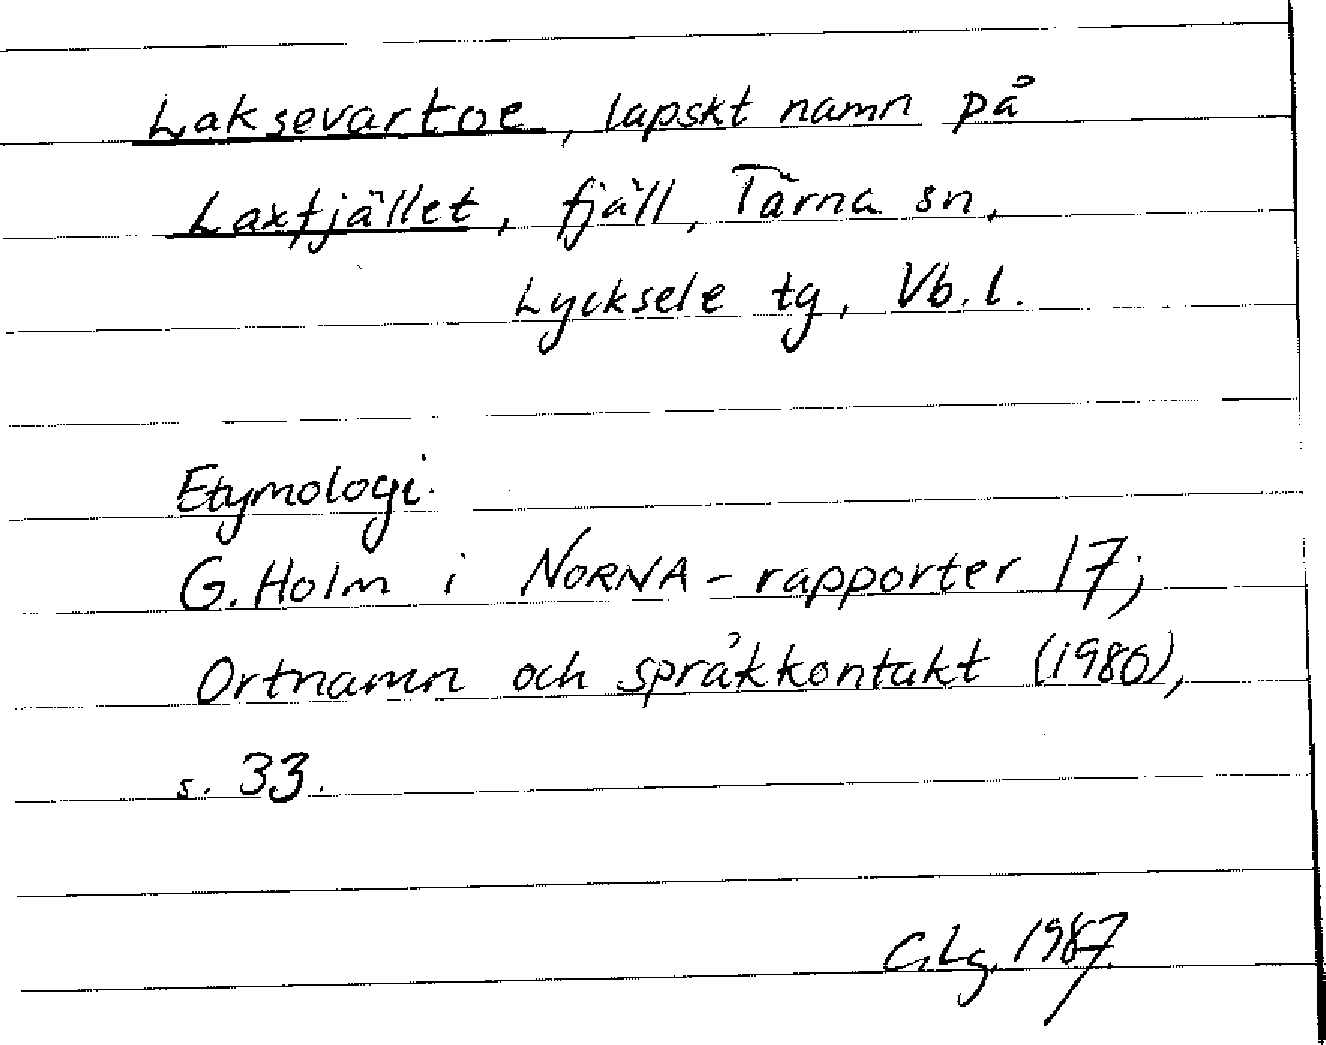 Laksevartoe, lapskt namn på
Laxfjället, fjäll, Tärna sn,
Lycksele tg, Vb.l.
Etymologi.
G. Holm i NORNA-rapporter 17;
Ortnamn och språkkontakt (1980),
s. 33.
C.Lg. 1987.